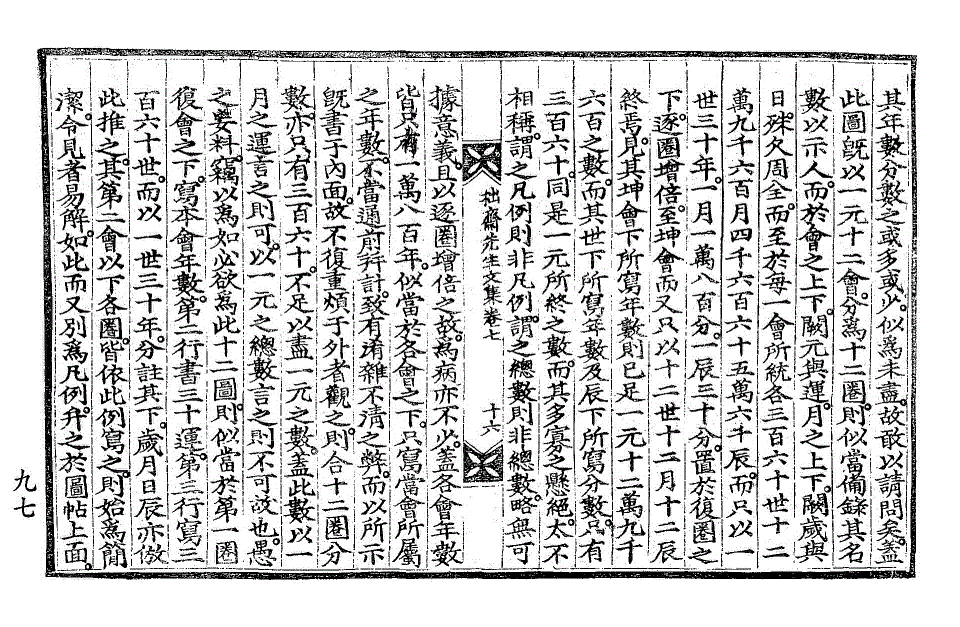 其年數分數之或多或少。似爲未盡。故敢以請問矣。蓋
此圖旣以一元十二會。分爲十二圈。則似當備錄其名
數以示人。而於會之上下。闕元與運。月之上下。闕歲與
日。殊欠周全。而至於每一會所統各三百六十世十二
萬九千六百月四千六百六十五萬六千辰。而只以一
世三十年。一月一萬八百分。一辰三十分。置於復圈之
下。逐圈增倍。至坤會而又只以十二世十二月十二辰
終焉。見其坤會下所寫年數則已足一元十二萬九千
六百之數。而其世下所寫年數及辰下所寫分數。只有
三百六十。同是一元所終之數。而其多寡之懸絕。太不
相稱。謂之凡例則非凡例。謂之總數則非總數。略無可
拙齋先生文集卷七
十六
據意義。且以逐圈增倍之故。爲病亦不少。蓋各會年數
皆只有一萬八百年。似當於各會之下。只寫當會所屬
之年數。不當通前幷計。致有淆雜不清之弊。而以所示
旣書于內面。故不復重煩于外者觀之。則合十二圈分
數。亦只有三百六十。不足以盡一元之數。蓋此數以一
月之運言之則可。以一元之總數言之則不可故也。愚
之妄料。竊以爲如必欲爲此十二圖。則似當於第一圈
復會之下。寫本會年數。第二行書三十運。第三行寫三
百六十世。而以一世三十年。分註其下。歲月日辰亦倣
此推之。其第二會以下各圈。皆依此例寫之。則始爲簡
潔。令見者易解。如此而又別爲凡例。弁之於圖帖上面。
九七